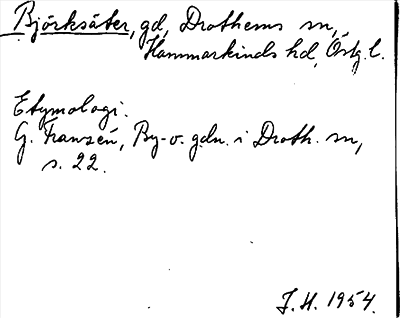 Björksäter, gd, Drothems sn,
Hammarkinds hd, Östg. l.
Etymologi.
G. Franzén, By- o. gdn. i Droth. sn,
s. 22.
J. H. 1954.